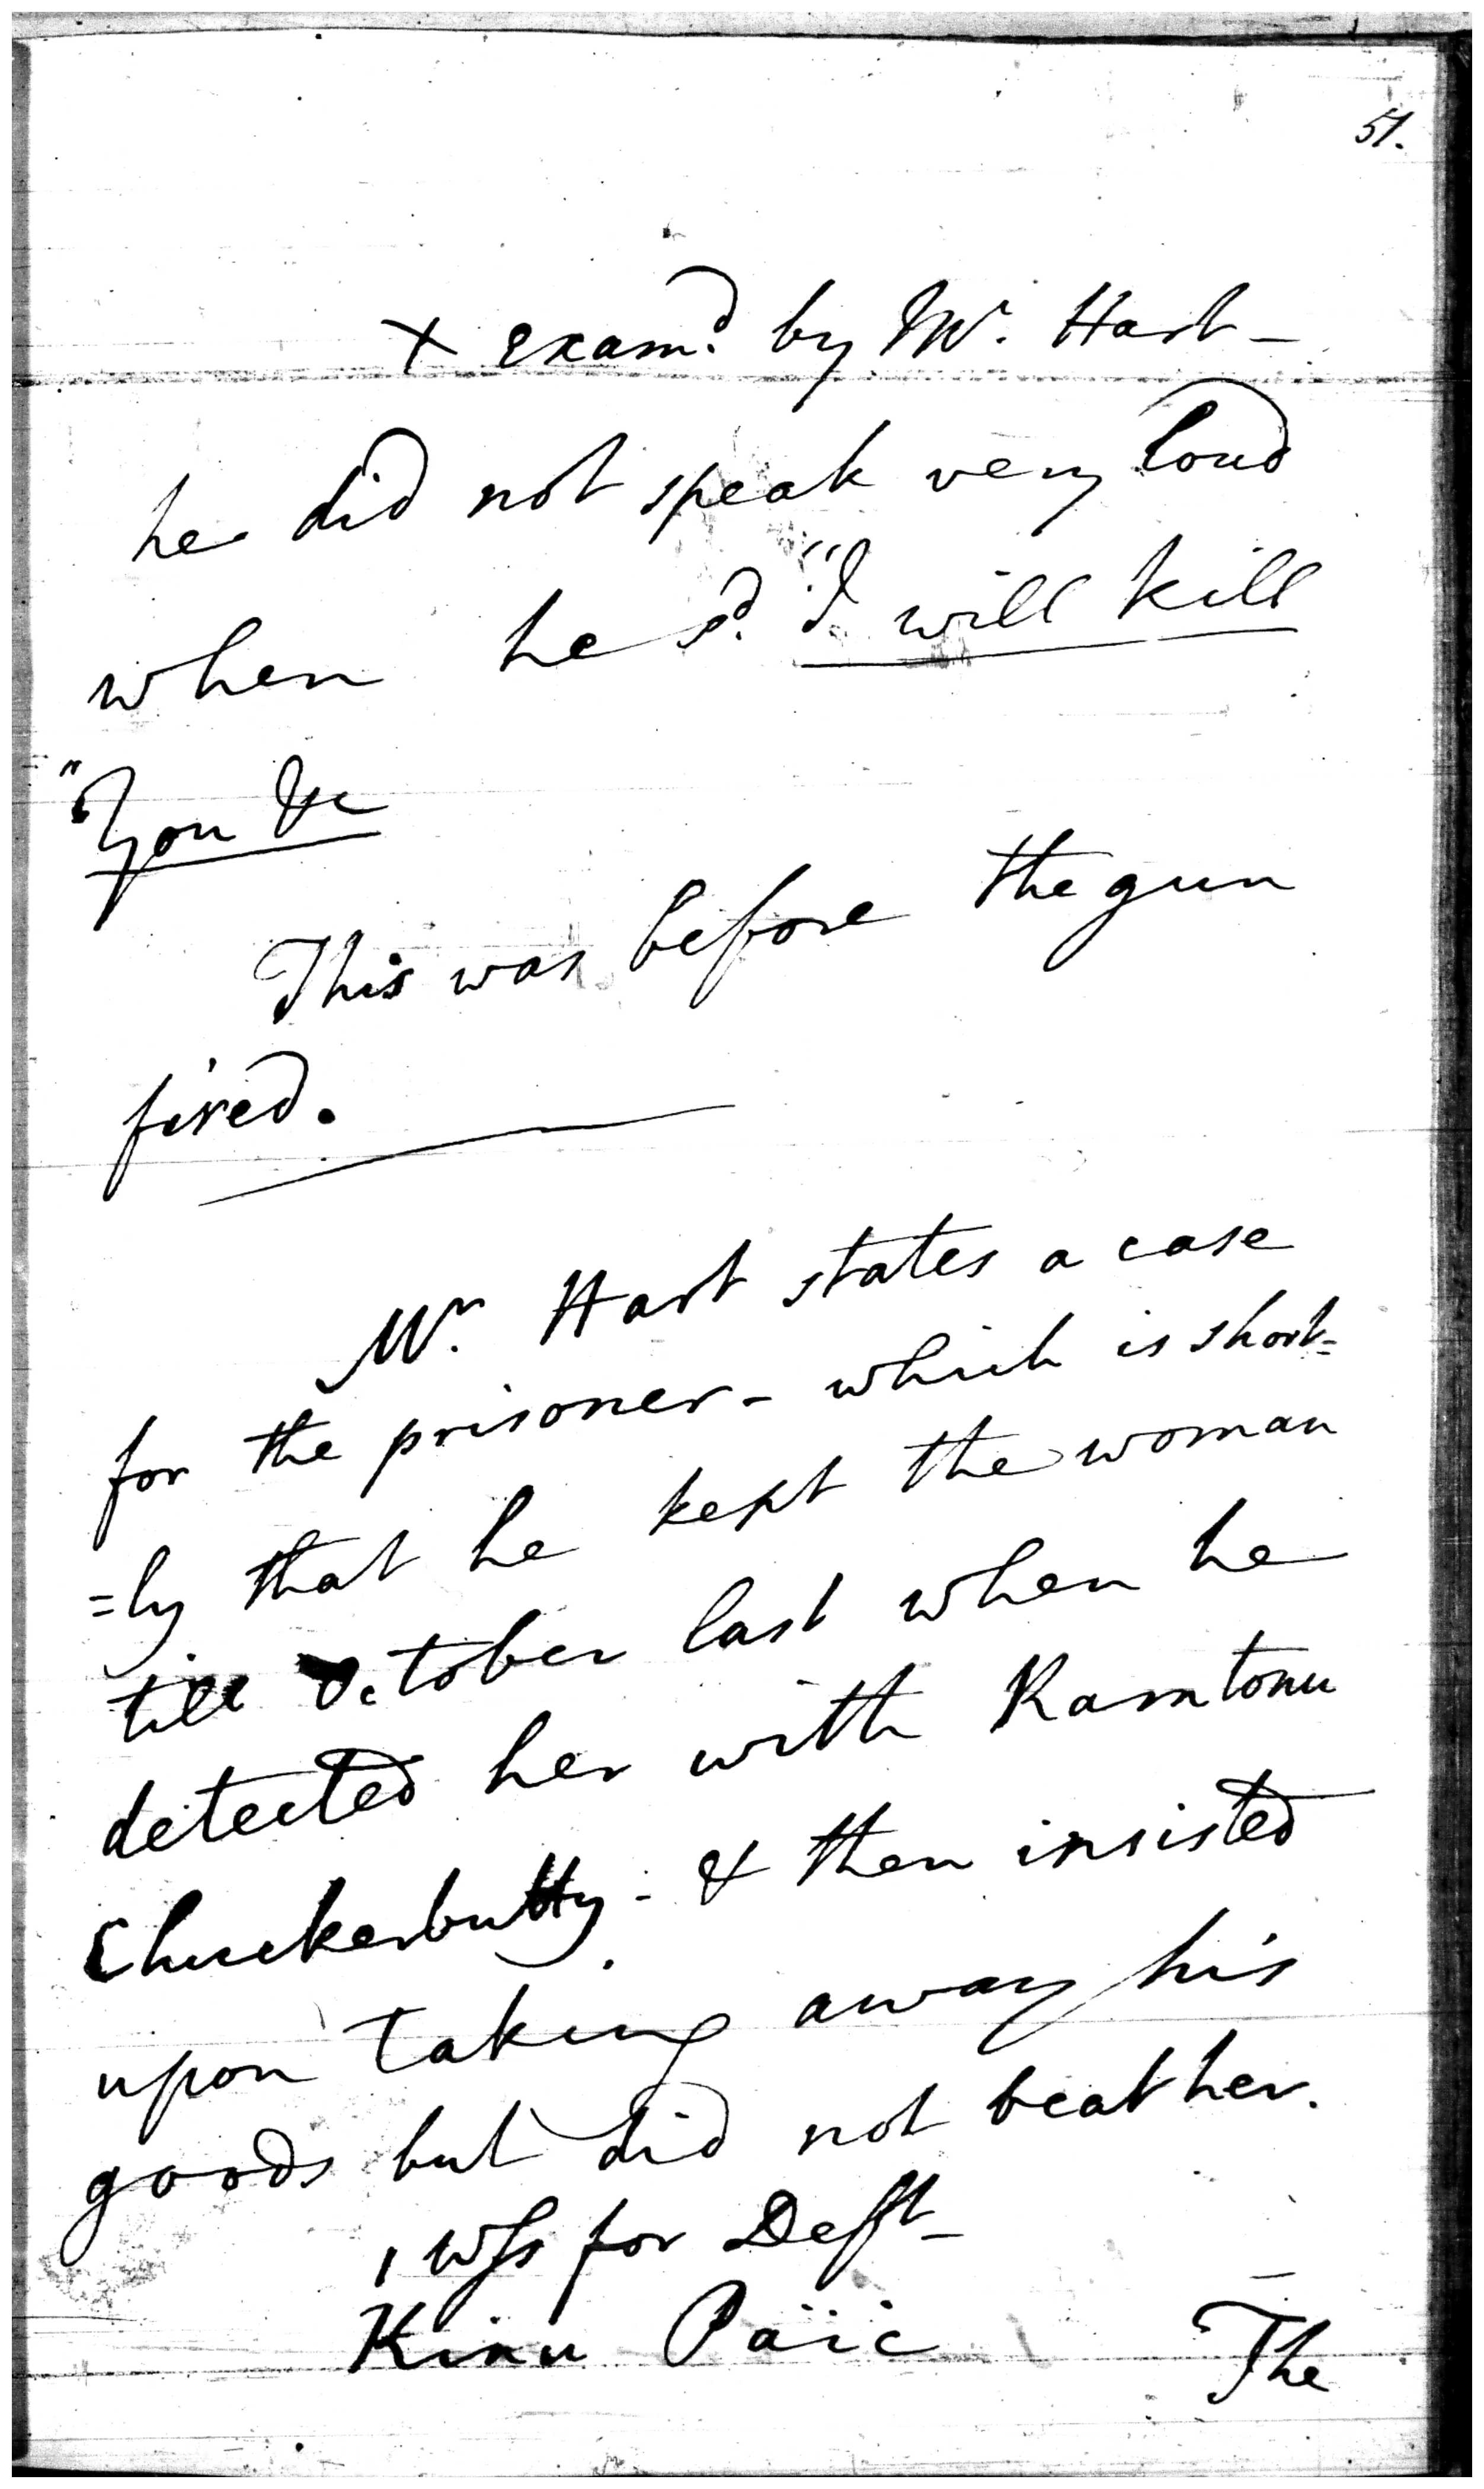 51.
x exam.d by Mr. Hart -
he did not speak very loud
when he sd. "I will kill
"You &c
This was before the gun
fired.
Mr. Hart states a case
for the prisoner - which is short=
=ly that he kept the woman
till October last when he
detected her with Ramtonu
Chuckerbutty - & then insisted
upon taking away his
goods but did not beat her.
1 Wss for Deft -
Kinu Paüc
The